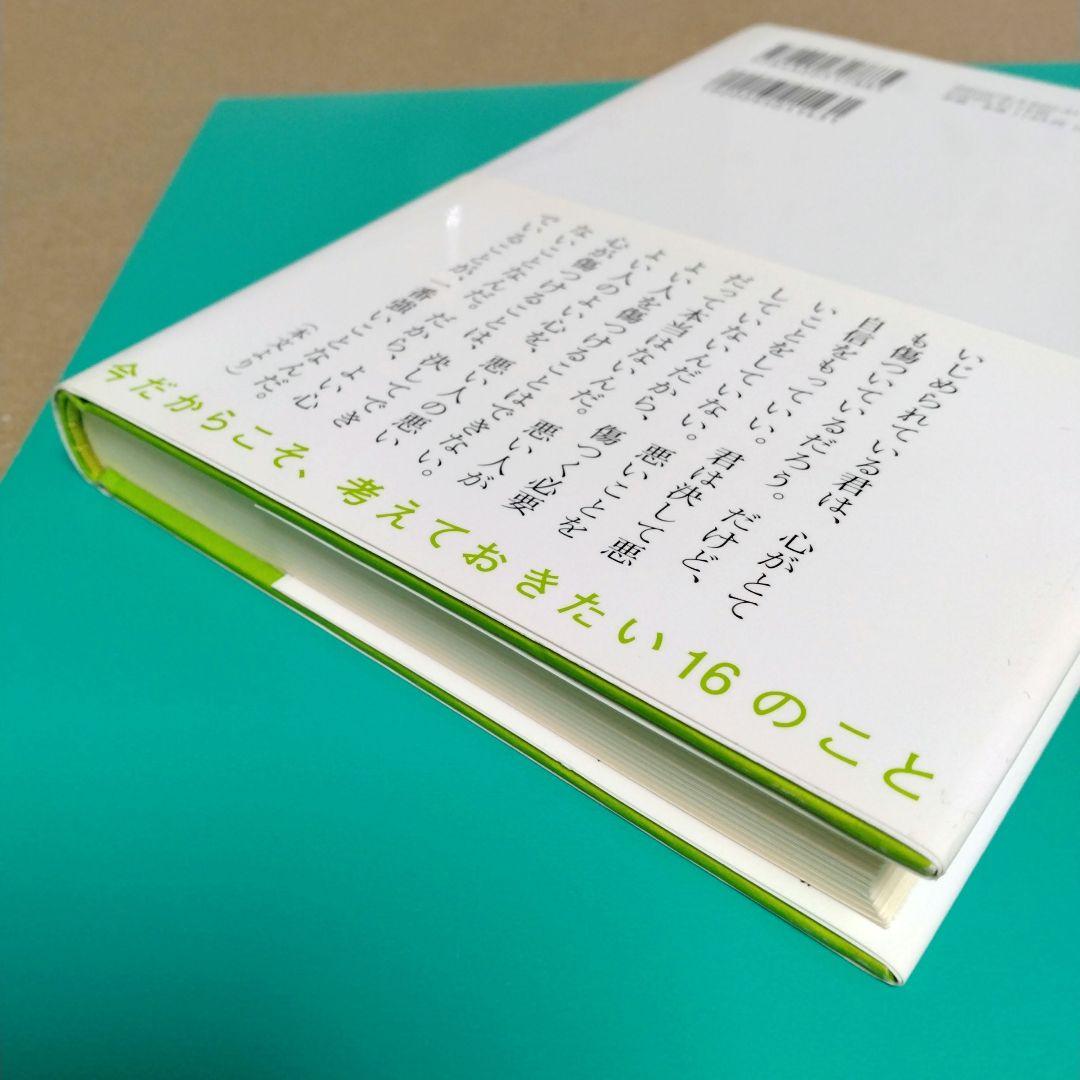 いじめられている君は、心がとて
も傷ついているだろう。だけど、
自信をもっていい。君は決して悪
いことをしていない。悪いことを
していないんだから、傷つく必要
だって本当はないんだ。悪い人が
よい人を傷つけることはできない。
よい人のよい心を、悪い人の悪い
心が傷つけることは、決してでき
ないことなんだ。だから、よい心
でいることが、一番強いことなんだ。
(本文より)
今だからこそ、考えておきたい16のこと